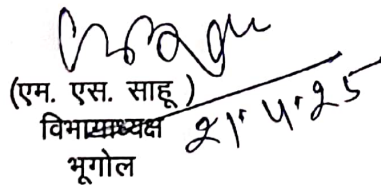 (एम. एस. साहू )
विभागाध्यक्ष 21.4.25
भूगोल